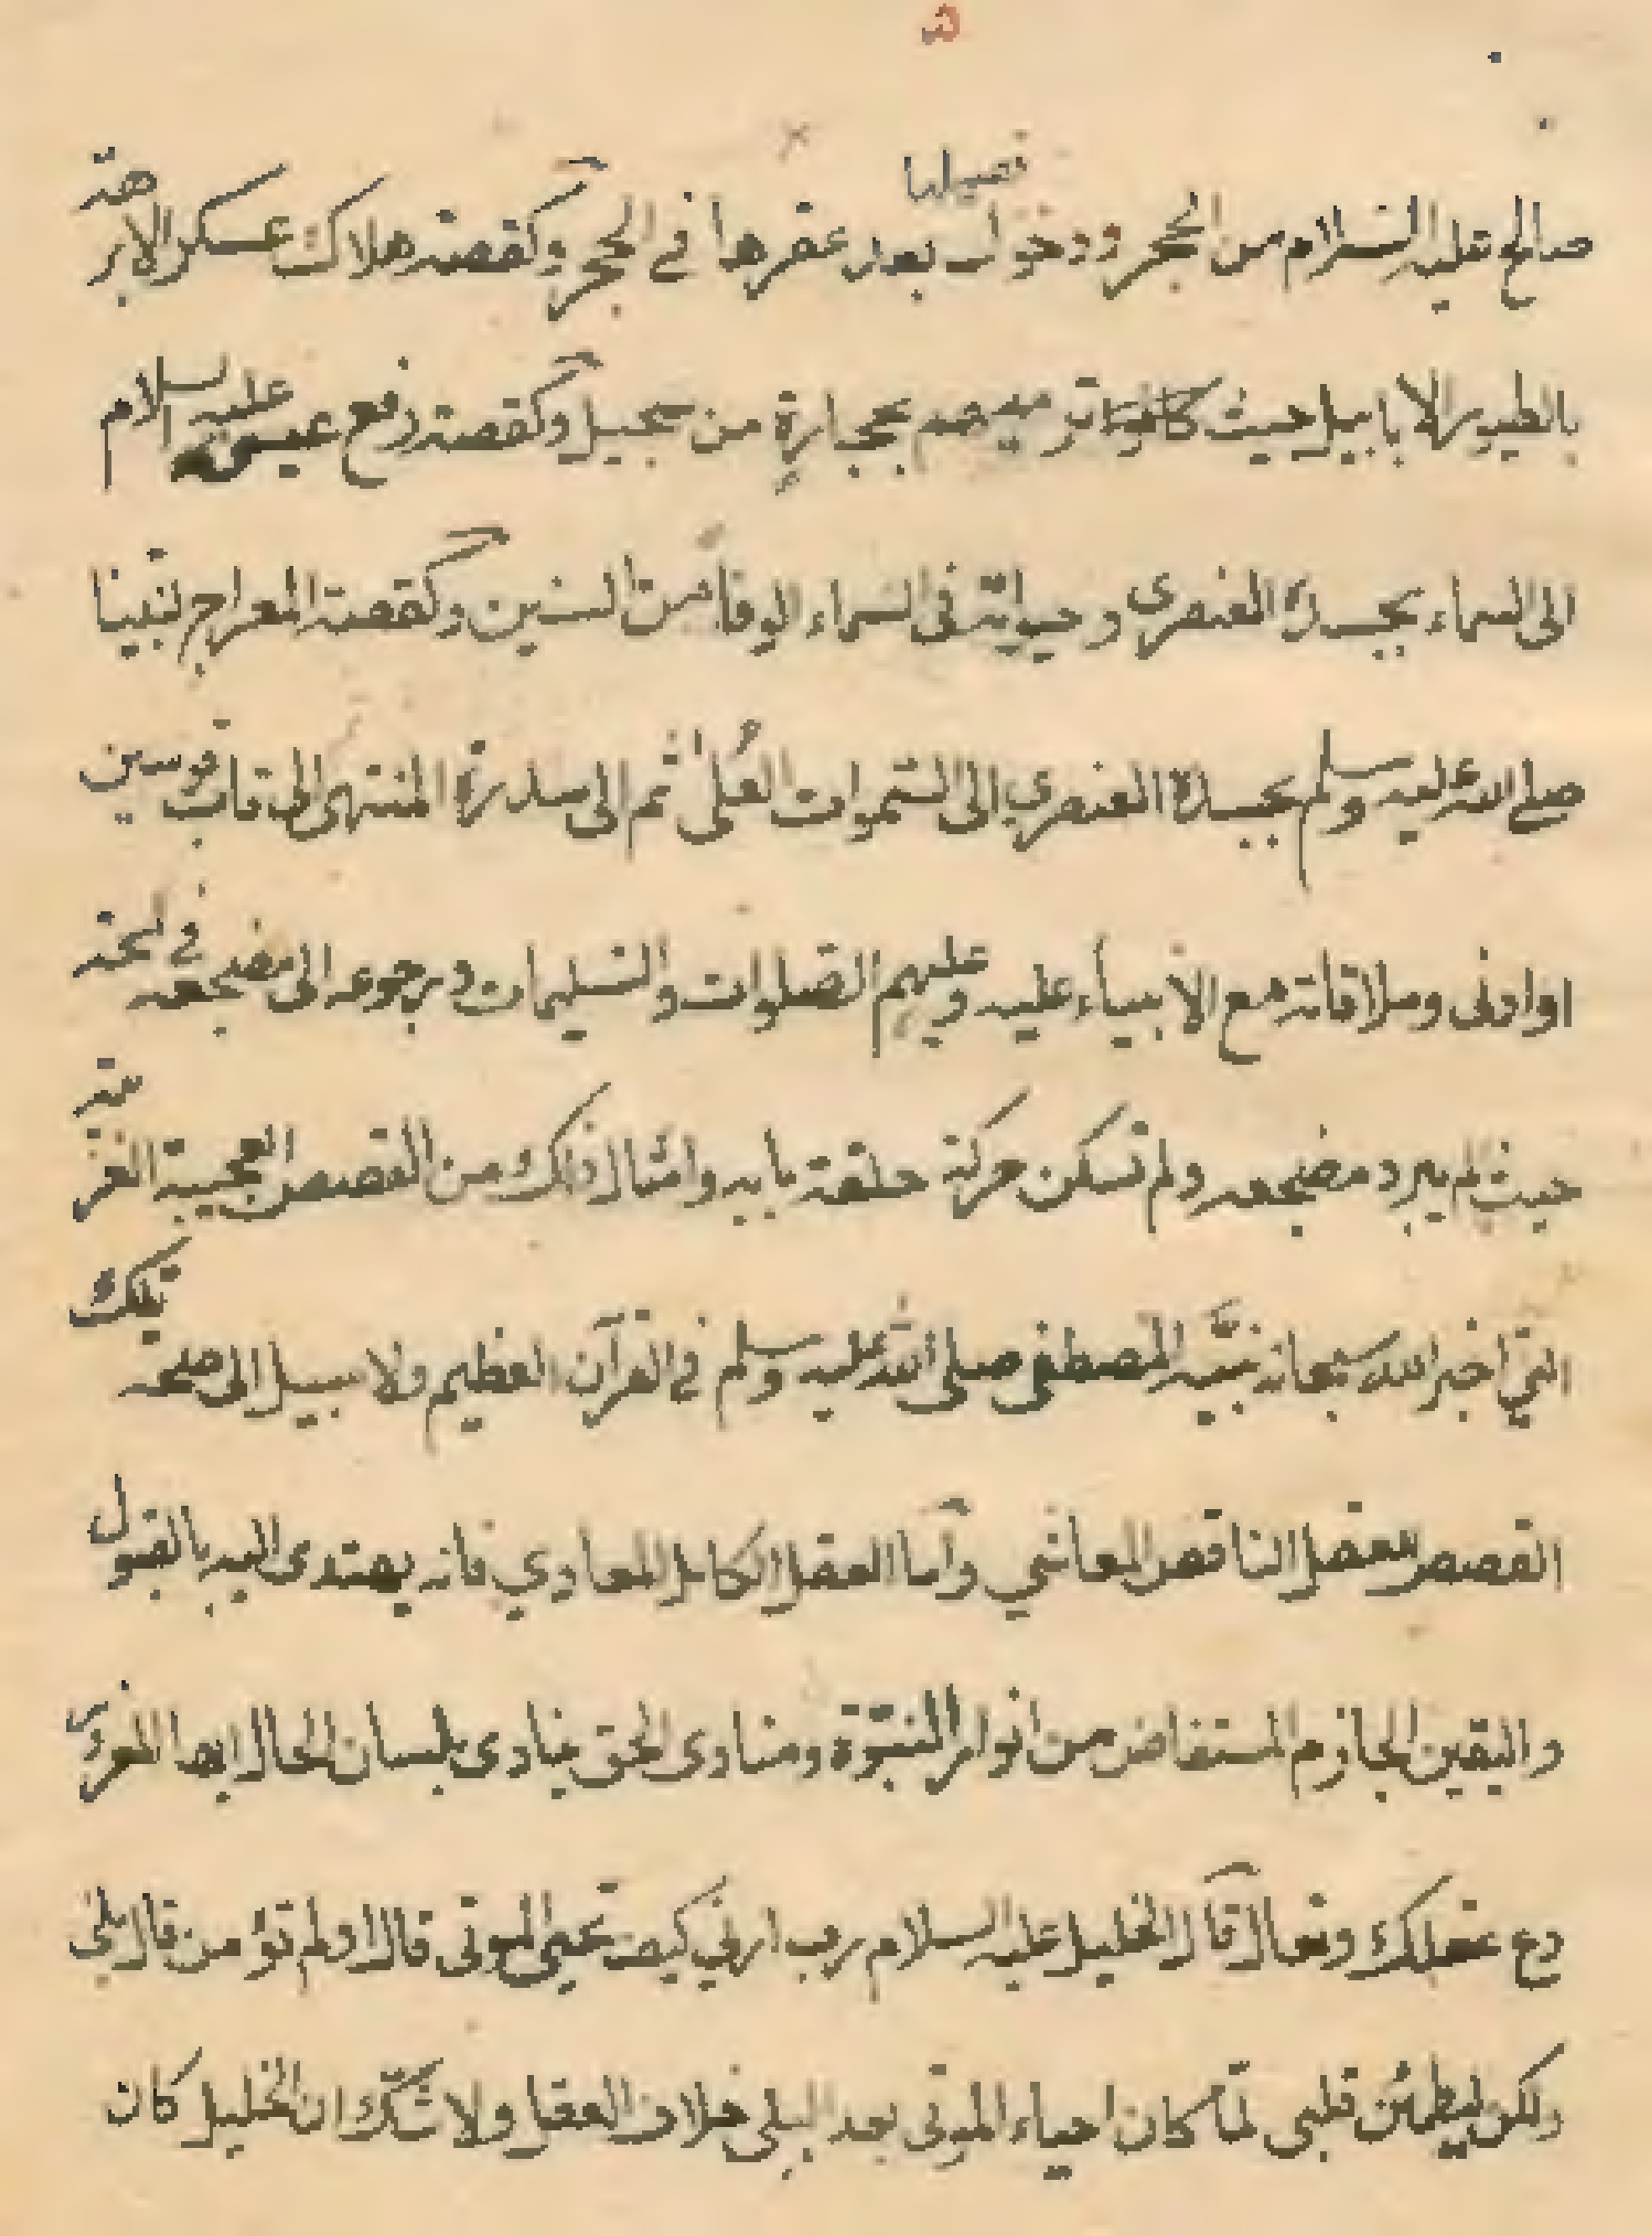 ۵
صالح عليه السلام من الحجر ودخول فصيلها بعد عقرها في الحجر وكقصة هلاك عسكر الابرهة
بالطيور الابابيل حيث كانوا ترميهم بحجارةٍ من سجيل وكقصة رفع عيسى عليه السلام
الى السماء بجسده العنصري وحيوته في السماء الوفاً من السنين وكقصة المعراج لنبينا
صلى الله عليه وسلم بجسده العنصري الى السموات العُلى ثم الى سدرة المنتهى الى قاب قوسين
او ادنى وملاقاته مع الانبياء عليه وعليهم الصلوات والتسليمات ورجوعه الى مضجعه في لمحة
حيث لم يبرد مضجعه ولم تسكن حركة حلقة بابه وامثال ذلك من القصص العجيبة الغريبة
التي اخبر الله سبحانه نبيَّه المصطفى صلى الله عليه وسلم في القرآن العظيم ولا سبيل الى صحة تلك
القصص للعقل الناقص المعاشي وأما العقل الكامل المعادي فانه يهتدى اليه بالقبول
واليقين الجازم المستفاض من انوار النبوّة ومنادى الحق ينادى بلسان الحال ايها المغرور
دع عقلك وتعال قال الخليل عليه السلام رب ارني كيف تحيى الموتى قال اولم تؤمن قال بلى
ولكن ليطمئن قلبي لمّا كان احياء الموتى بعد البلى خلاف العقل ولا شكّ ان الخليل كان